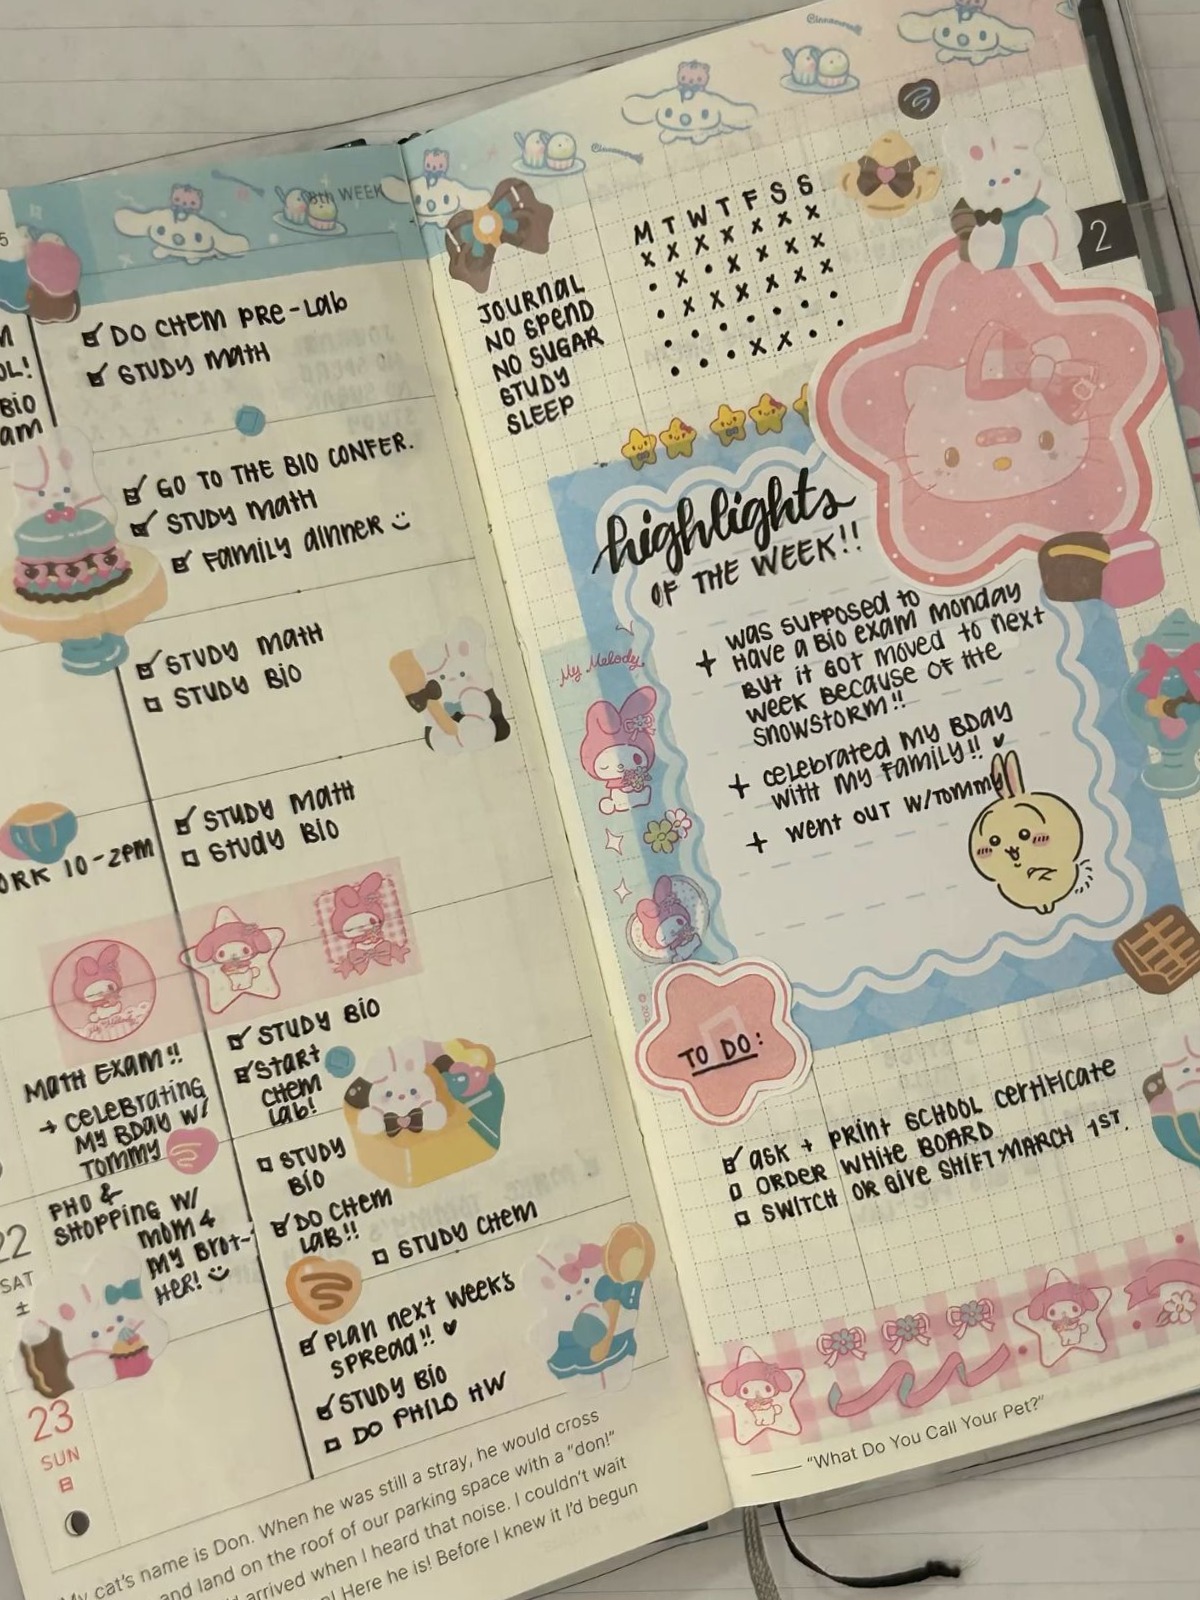 8th WEEK
5
OL!
BIO
am
☑ DO CHEM PRE-Lab
☑ STUDY MATH
☑ GO TO THE BIO CONFER.
☑ STUDY MATH
☑ FAMILY DINNER
☑ STUDY MATH
☐ STUDY BIO
ORK 10-2PM
☑ STUDY MATH
☐ STUDY BIO
MATH EXAM!!
→ CELEBRATING
MY BDAY W/
TOMMY
☑ STUDY BIO
☑ START
CHEM
LAB!
22
SAT
土
PHO &
SHOPPING W/
MOM &
MY BROT-
HER!
☐ STUDY
BIO
☑ DO CHEM
LAB!!
☐ STUDY CHEM
23
SUN
日
☑ PLAN NEXT WEEK'S
SPREAD!!
☑ STUDY BIO
☐ DO PHILO HW
My cat's name is Don. When he was still a stray, he would cross
and land on the roof of our parking space with a "don!"
arrived when I heard that noise. I couldn't wait
Here he is! Before I knew it I'd begun
Cinnamoroll
2
M T W T F S S
JOURNAL X X X X X X X
NO SPEND • X • X X X X
NO SUGAR • X X X X X X
STUDY • • • • • • •
SLEEP • • • X X • •
highlights
OF THE WEEK!!
+ WAS SUPPOSED TO
HAVE A BIO EXAM MONDAY
BUT IT GOT MOVED TO NEXT
WEEK BECAUSE OF THE
SNOWSTORM!!
+ CELEBRATED MY BDAY
WITH MY FAMILY!!
+ WENT OUT W/TOMMY
My Melody
TO DO:
☑ ASK + PRINT SCHOOL CERTIFICATE
☐ ORDER WHITE BOARD
☐ SWITCH OR GIVE SHIFT: MARCH 1ST.
"What Do You Call Your Pet?"